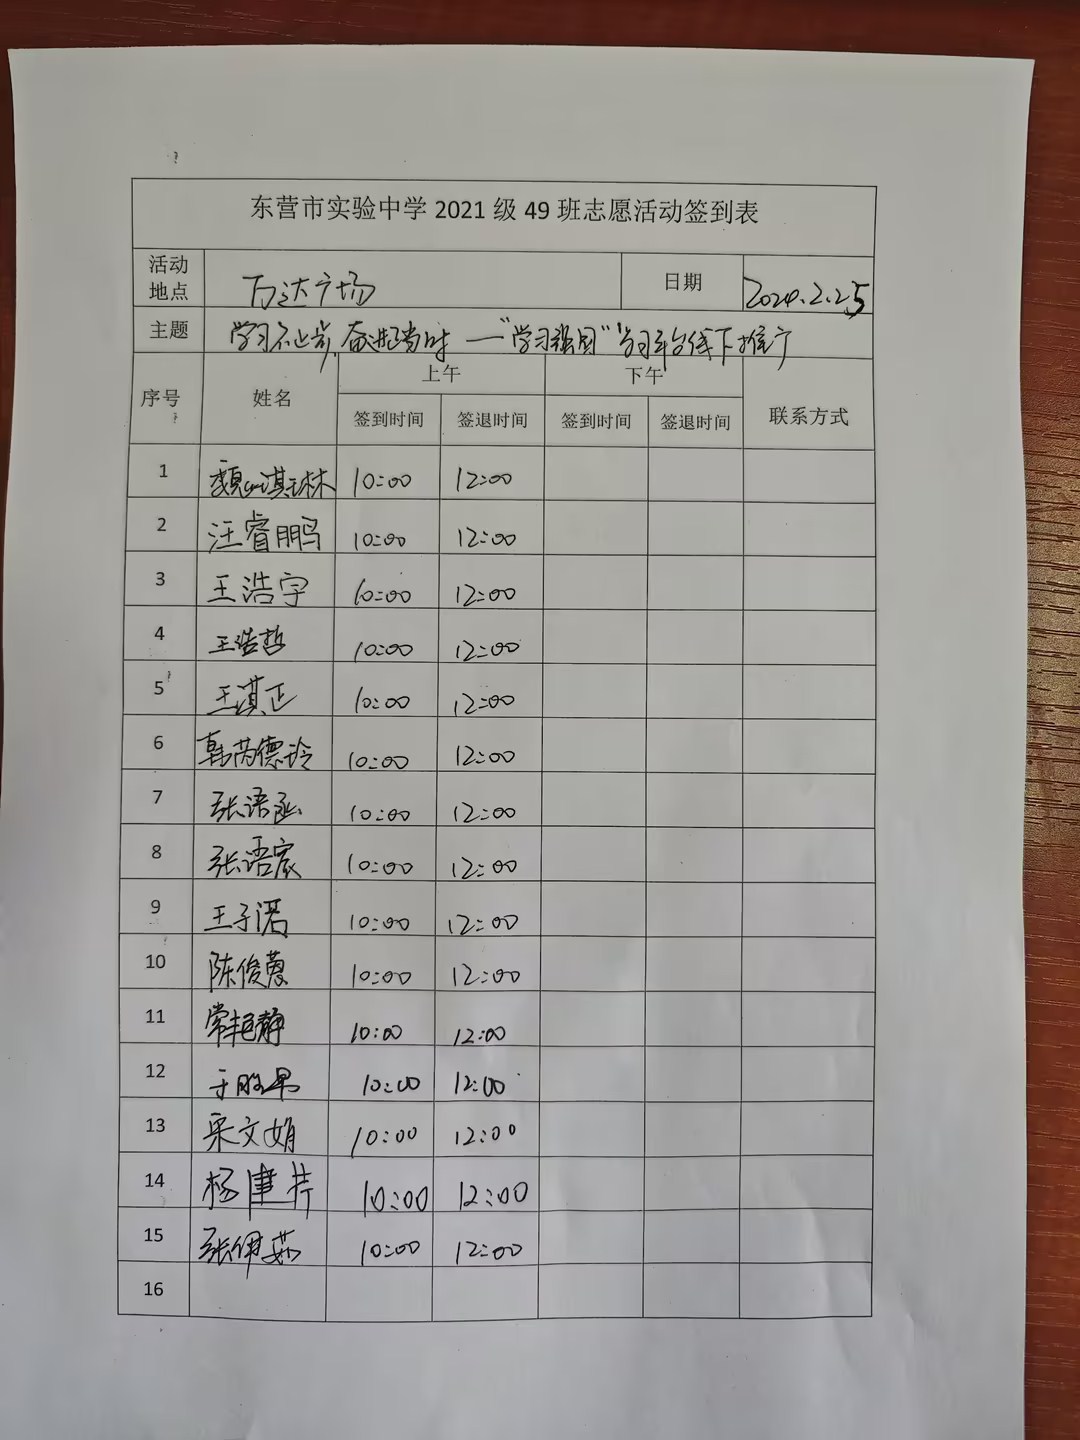 东营市实验中学 2021 级 49 班志愿活动签到表
活动地点 万达广场 日期 2024.2.25
主题 学习不止步,奋进正当时 —"学习强国"学习平台线下推广
序号 姓名 上午 下午 联系方式
签到时间 签退时间 签到时间 签退时间
1 10:00 12:00
2 汪睿鹏 10:00 12:00
3 王浩宇 10:00 12:00
4 王浩哲 10:00 12:00
5 王淇正 10:00 12:00
6 韩芮德玲 10:00 12:00
7 张语丞 10:00 12:00
8 张语宸 10:00 12:00
9 王子涵 10:00 12:00
10 陈俊蓉 10:00 12:00
11 常艳静 10:00 12:00
12 10:00 12:00
13 宋文娟 10:00 12:00
14 杨 10:00 12:00
15 张伊茹 10:00 12:00
16